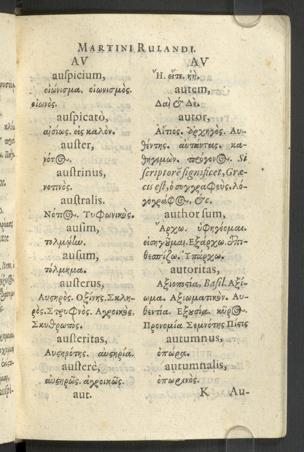 MARTINI RULANDI.
AV
auspicium,
οἰώνισμα. οἰωνισμὸς.
οἰωνός.
auspicatò,
αἰσίως. εἰς καλόν.
auster,
νότος.
austrinus,
νοτινὸς.
australis.
Νότιος. Τυφωνικὸς.
ausim,
τολμῷμι
ausum,
τόλμημα.
austerus,
Αὐστηρὸς. Ὀξίνης. Σκλη-
ρὸς. Στρυφνὸς. Ἀγροικος.
Σκυθρωπὸς.
austeritas,
Αὐστηρότης. αὐστηρία.
austerè,
αὐστηρῶς. ἀγροικῶς.
aut.
AV
Ἢ. εἴτε. ἠὲ.
autem,
Δαὶ & Δὲ.
autor,
Αἴτιος. ἀρχηγὸς. Αὐ-
θέντης.
καθηγεμών.
Si
scriptorē significet, Græ-
cis est, ὁ συγγραφεὺς. λο-
γογράφος. &c.
author sum,
Ἄρχω. ὑφηγέομαι.
εἰσηγοῦμαι. Ἐξάρχω.
Ὑπάρχω.
autoritas,
Ἀξιοπιστία. Basil. Ἀξί-
ωμα. Ἀξιωματικὸν. Αὐ-
θεντία. Ἐξουσία. κῦρος.
Προνομία Σεμνότης Πίστις
autumnus,
ὀπώρα.
autumnalis,
ὀπωρινὸς.
K Au-